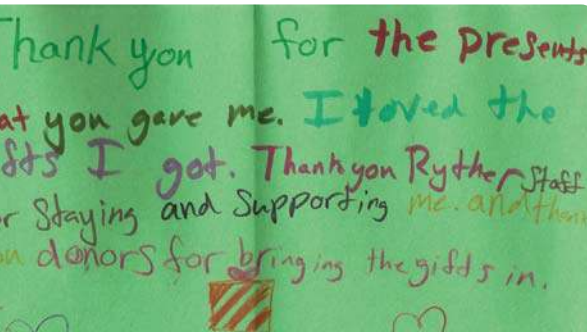 Thank you for the presents
at you gave me. I loved the
fts I got. Thank you Ryther Staff
r Staying and Supporting me. and than
u donors for bringing the gifds in.